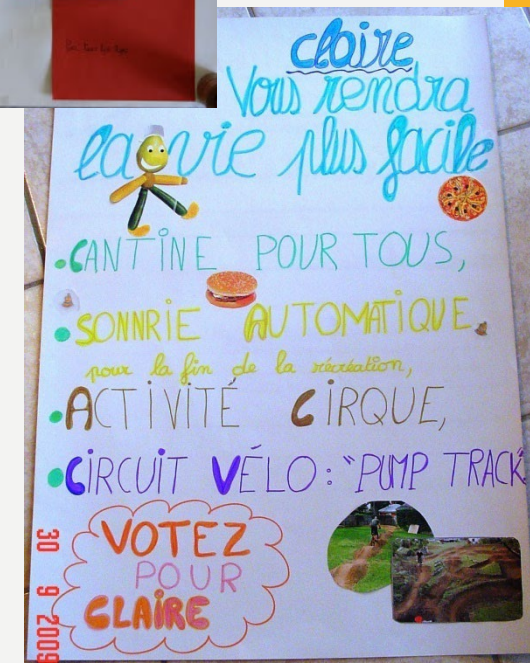 claire
Vous rendra
la vie plus facile
• CANTINE POUR TOUS,
• SONNRIE AUTOMATIQUE
pour la fin de la récréation,
• ACTIVITÉ CIRQUE,
• CIRCUIT VÉLO : "PUMP TRACK"
VOTEZ
POUR
CLAIRE
30 9 2009